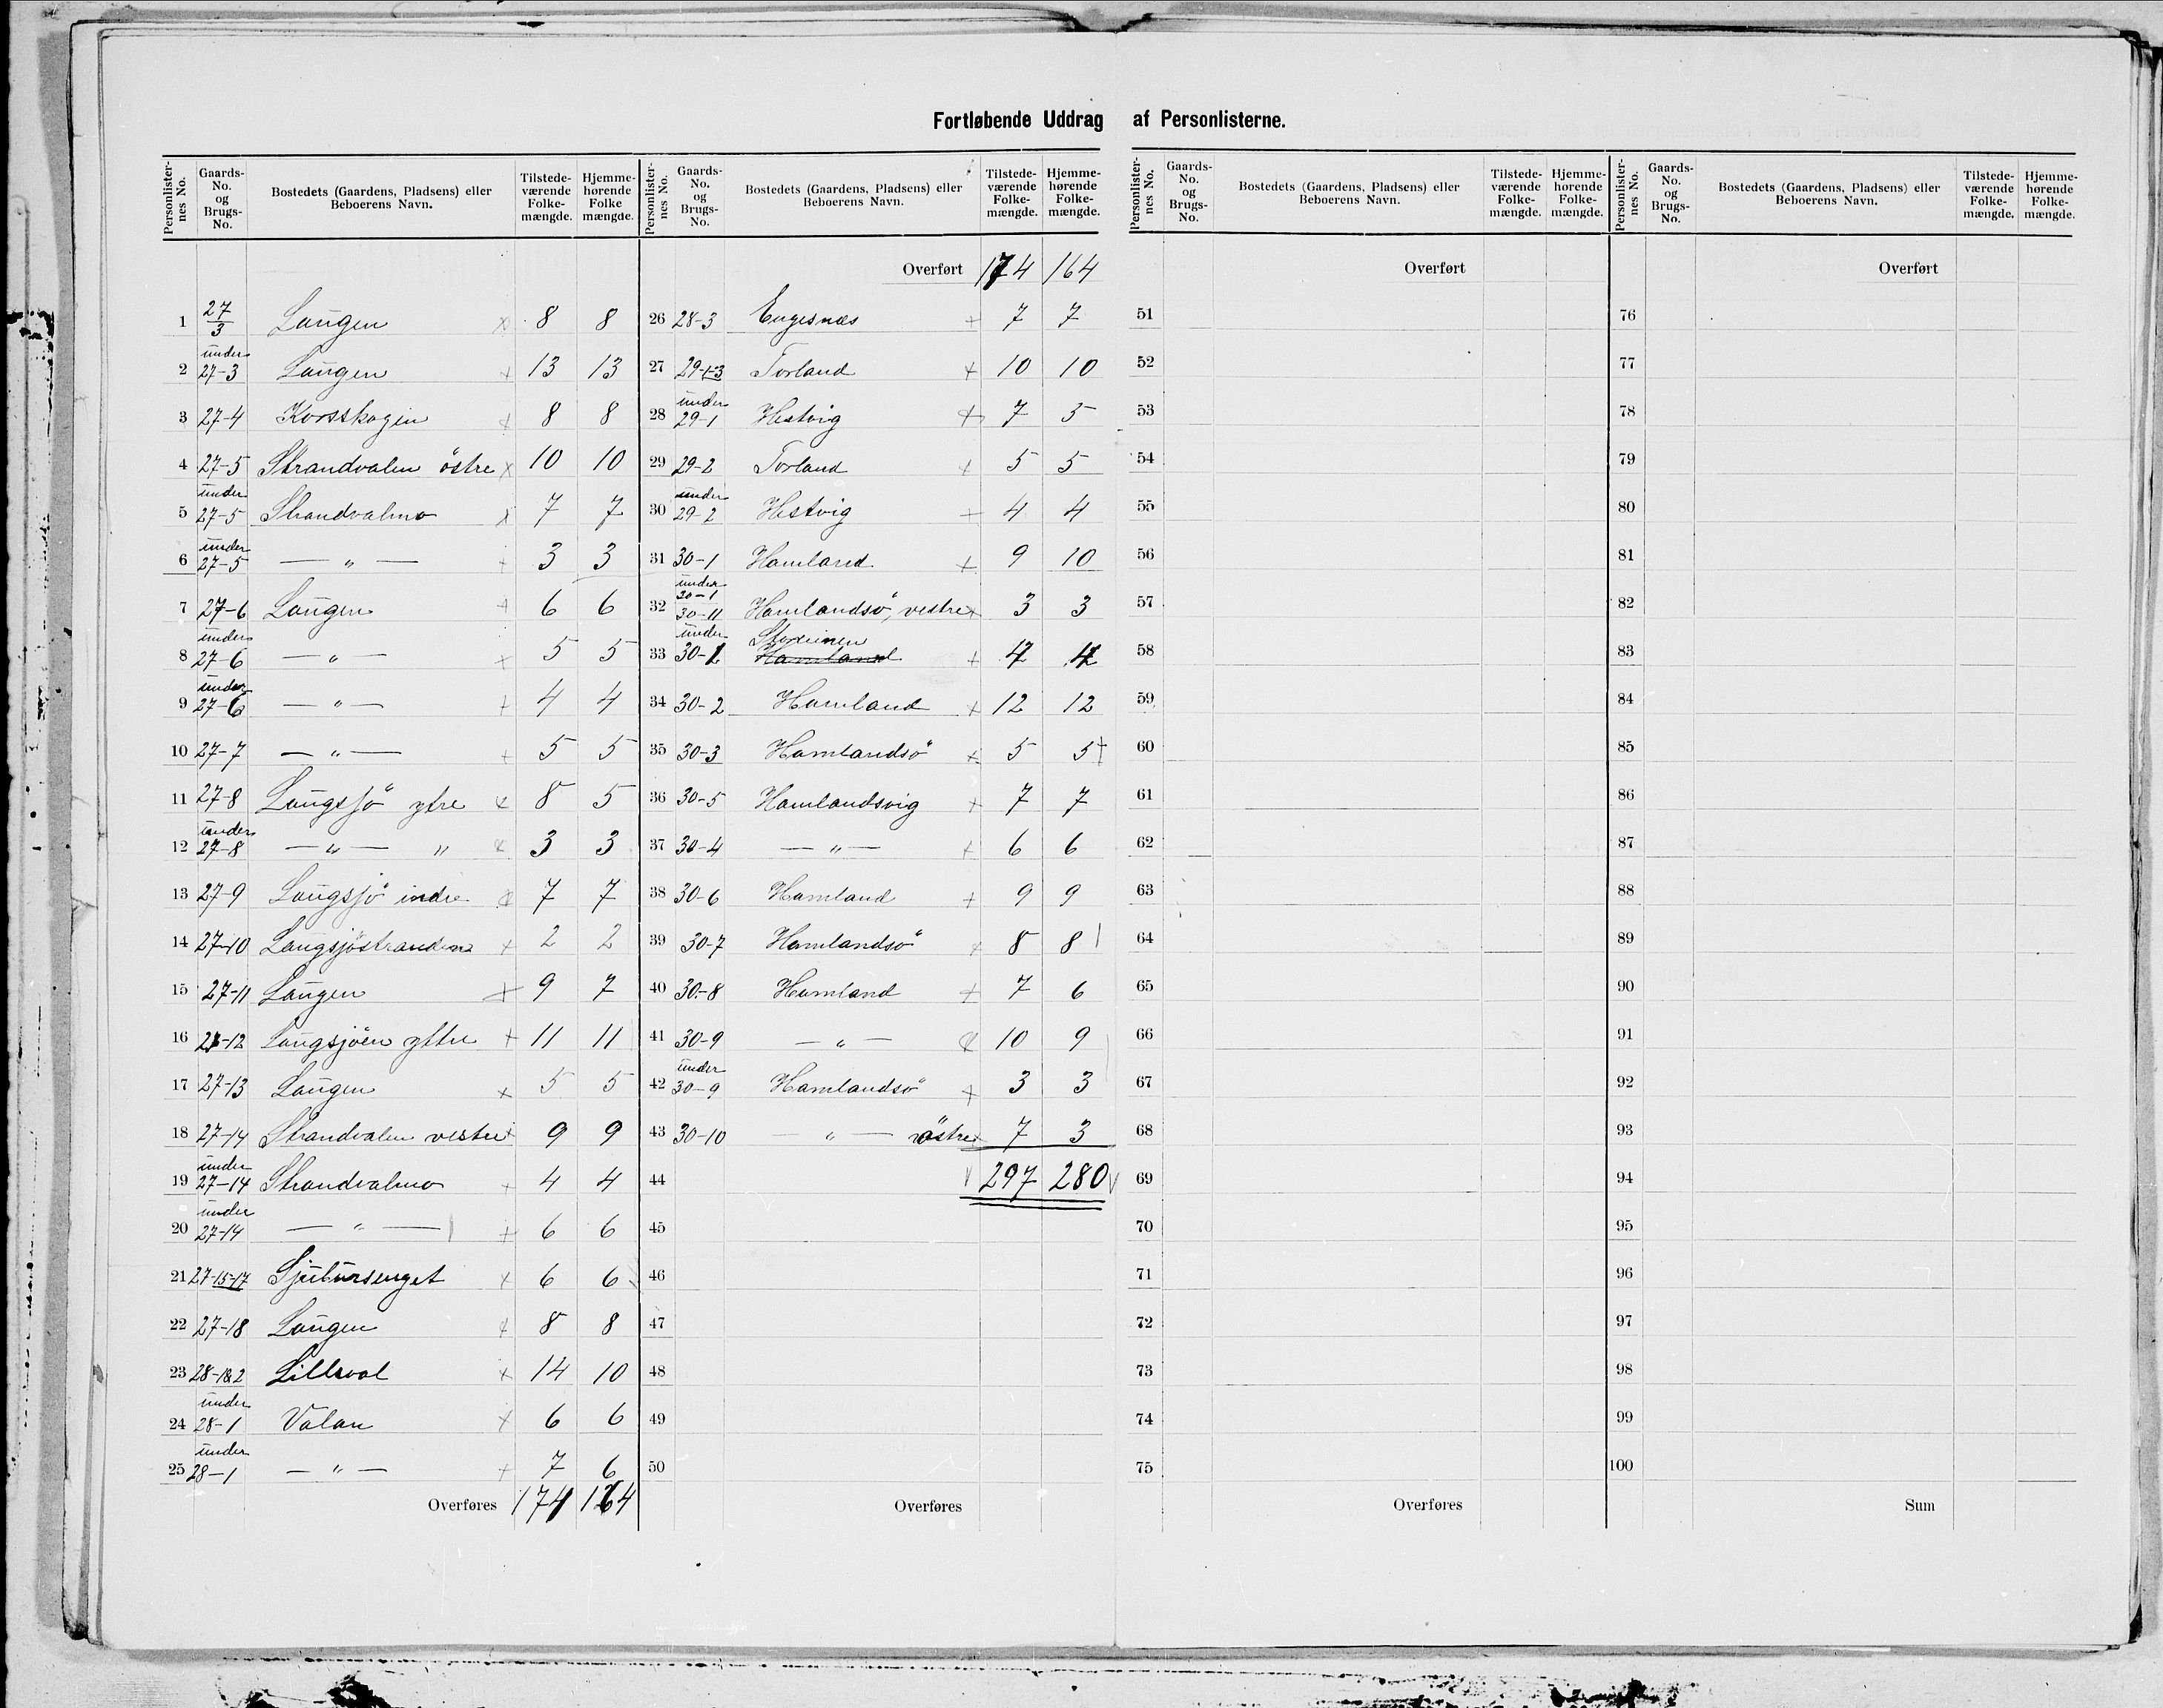 Fortløbende Uddrag af Personlisterne.
Personlisternes No. Gaards-No. og Brugs-No. Bostedets (Gaardens, Pladsens) eller Beboerens Navn. Tilstedeværende Folkemængde. Hjemmehørende Folkemængde.
1 27/3 Laugen 8 8
2 under 27-3 Laugen 13 13
3 27-4 Korsskogen 8 8
4 27-5 Strandvalen östre 10 10
5 under 27-5 Strandvalmo 7 7
6 under 27-5 — " — 3 3
7 27-6 Laugen 6 6
8 under 27-6 — " — 5 5
9 under 27-6 — " — 4 4
10 27-7 — " — 5 5
11 27-8 Laugsjö ytre 8 5
12 under 27-8 — " — " 3 3
13 27-9 Laugsjö indre 7 7
14 27-10 Laugsjöstranden 2 2
15 27-11 Laugen 9 7
16 27-12 Laugsjöen yttre 11 11
17 27-13 Laugen 5 5
18 27-14 Strandvalen vestre 9 9
19 under 27-14 Strandvalmo 4 4
20 under 27-14 — " — 6 6
21 27-15-17 Sjubursenget 6 6
22 27-18 Laugen 8 8
23 28-1&2 Lilleval 14 10
24 under 28-1 Valan 6 6
25 under 28-1 — " — 7 6
Overføres 174 164
Personlisternes No. Gaards-No. og Brugs-No. Bostedets (Gaardens, Pladsens) eller Beboerens Navn. Tilstedeværende Folkemængde. Hjemmehørende Folkemængde.
Overført 174 164
26 28-3 Engesnæs 7 7
27 29-1-3 Torland 10 10
28 under 29-1 Hestvig 7 5
29 29-2 Torland 5 5
30 under 29-2 Hestvig 4 4
31 30-1 Hamland 9 10
32 under 30-1 30-11 Hamlandsö, vestre 3 3
33 under 30-1 Hamland 4 4
34 30-2 Hamland 12 12
35 30-3 Hamlandsö 5 5
36 30-5 Hamlandsvig 7 7
37 30-4 — " — 6 6
38 30-6 Hamland 9 9
39 30-7 Hamlandsö 8 8
40 30-8 Hamland 7 6
41 30-9 — " — 10 9
42 under 30-9 Hamlandsö 3 3
43 30-10 — " — östre 7 3
44 297 280
45
46
47
48
49
50
Overføres
Personlisternes No. Gaards-No. og Brugs-No. Bostedets (Gaardens, Pladsens) eller Beboerens Navn. Tilstedeværende Folkemængde. Hjemmehørende Folkemængde.
Overført
51
52
53
54
55
56
57
58
59
60
61
62
63
64
65
66
67
68
69
70
71
72
73
74
75
Overføres
Personlisternes No. Gaards-No. og Brugs-No. Bostedets (Gaardens, Pladsens) eller Beboerens Navn. Tilstedeværende Folkemængde. Hjemmehørende Folkemængde.
Overført
76
77
78
79
80
81
82
83
84
85
86
87
88
89
90
91
92
93
94
95
96
97
98
99
100
Sum